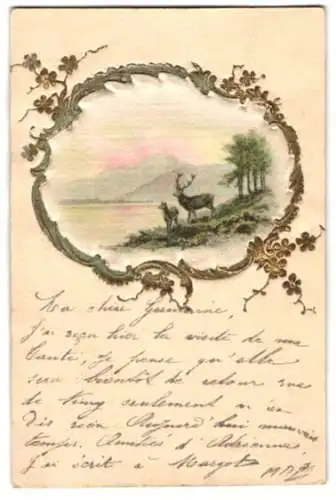 Ma chère Germaine,
J'ai reçu hier la visite de ma
tante, je pense qu'elle
sera bientôt de retour rue
de seulement n'en
dis rien. Aujourd'hui mauvais
temps. Amitiés d'Adrienne
J'ai écrit à Margot